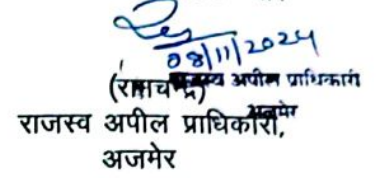 08/11/2024
(रामचन्द्र)
राजस्व अपील प्राधिकारी
अजमेर
राजस्व अपील प्राधिकारी,
अजमेर